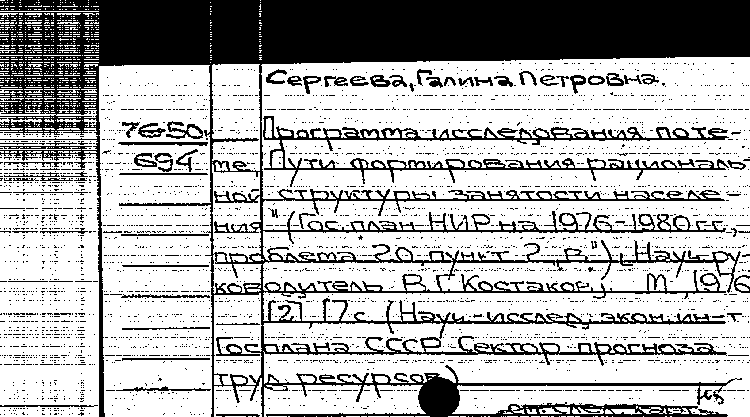 Сергеева, Галина Петровна.
76-50 Программа исследования по те-
694 ме "Пути формирования рациональ-
ной структуры занятости населе-
ния" (Гос. план НИР на 1976-1980 гг.,
проблема 20, пункт 2 "в") [Науч. ру-
ководитель В.Г. Костаков]. М., 1976
[2], 17 с. (Науч.-исслед. экон. ин-т
Госплана СССР Сектор прогноза
труд. ресурсов)
см. след. карт.